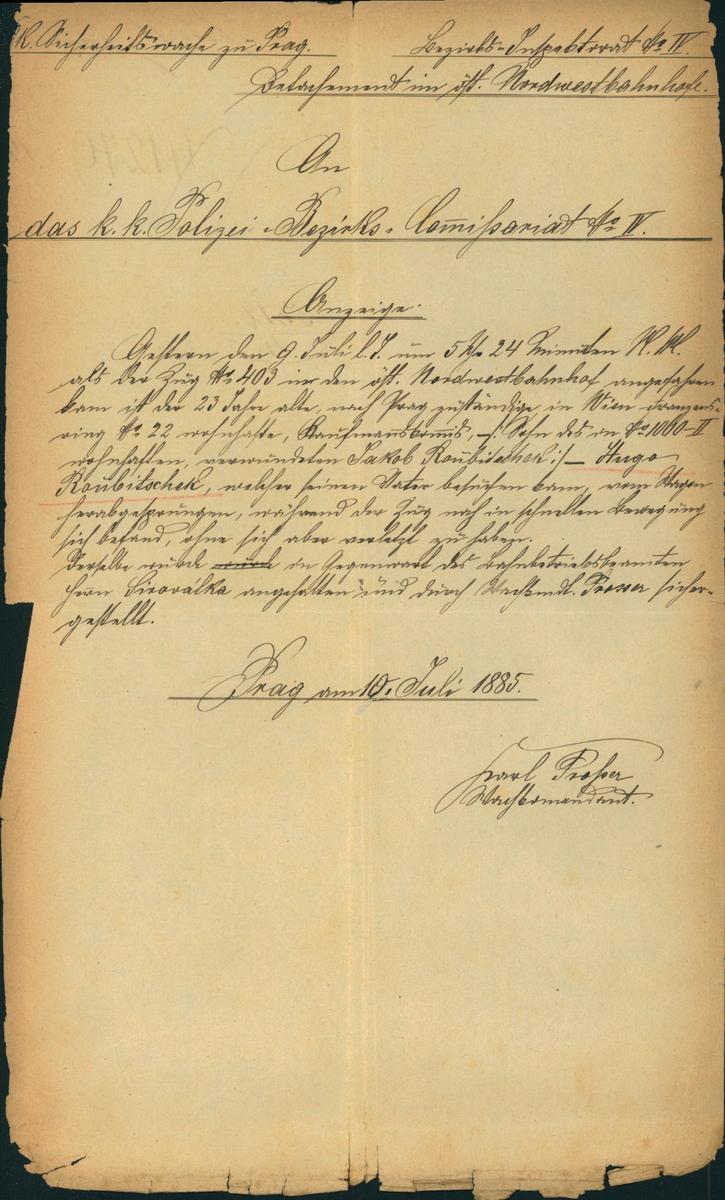 k. Sicherheitswache zu Prag. Bezirks-Inspektorat No IV.
Detachement im öst. Nordwestbahnhofe.
An
das k. k. Polizei-Bezirks-Com̅issariat No IV.
Anzeige.
Gestern den 9. Juli l. J. um 5 Uhr 24 Minuten N. M.
als der Zug No 403 in den öst. Nordwestbahnhof angefahren
kam ist der 23 Jahre alte, nach Prag zuständige, in Wien Franzens-
ring No 22 wohnhafte, Kaufmannscom̅is, –/: Sohn des in No 1000-II
wohnhaften, verwundeten Jakob Roubitschek :/– Hugo
Roubitschek, welcher seinen Vater besuchen kam, vom Wagen
herabgesprungen, während der Zug noch in schnellen Bewegung
sich befand, ohne sich aber verletzt zu haben.
Derselbe wurde in Gegenwart des Bahnbetriebsbeamten
Herrn Sirovátka angehalten und durch Wachkmdt. Prosser sicher-
gestellt.
Prag am 10. Juli 1885.
Karl Prosser
Wachkomandant.